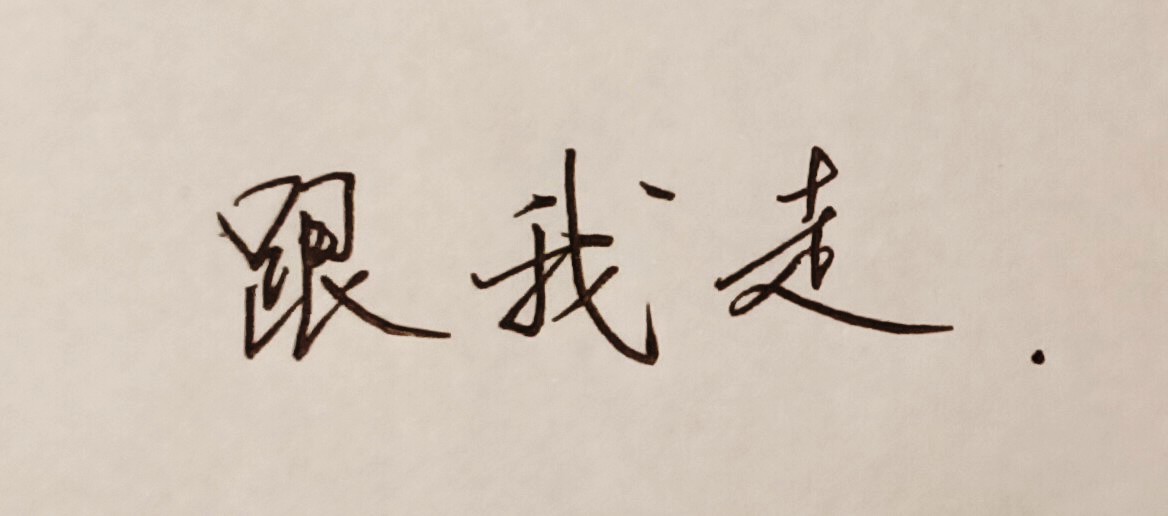 跟我走.